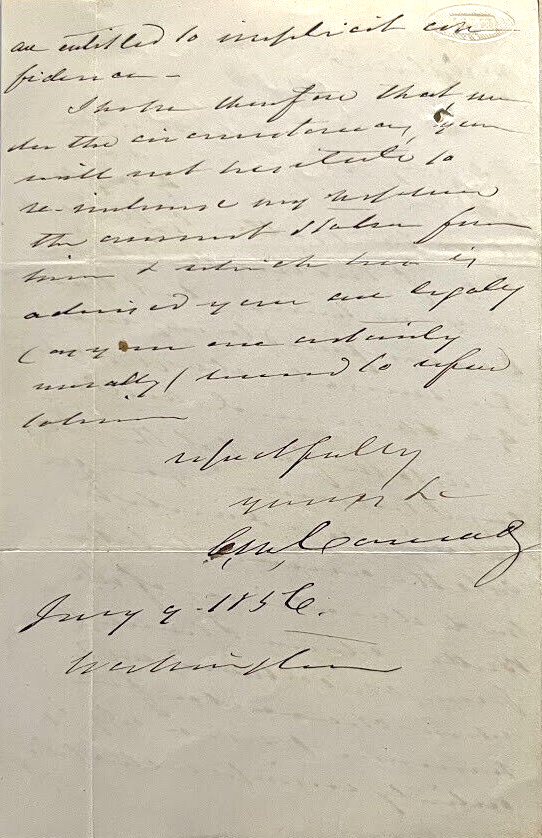 are entitled to implicit con-
fidence -
I hope therefore that un
der the circumstances, you
will not hesitate to
re-imburse my nephew
the amount stolen from
him & which he is
advised you are legaly
(as you are certainly
morally) bound to refund
to him
respectfully
yours &c
C. M. Conrad
Jany 9 - 1856.
Washington